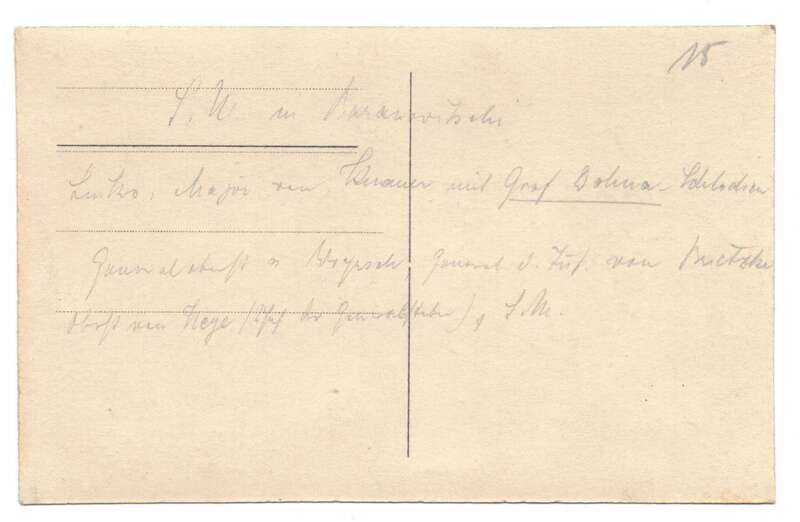 15
S. M. in Baranowitschi
Links, Major von Knauer mit Graf Dohna-Schlodien
Generaloberst v Woyrsch General d. Inf von
Oberst von Heye (Chef des Generalstabes), S. M.